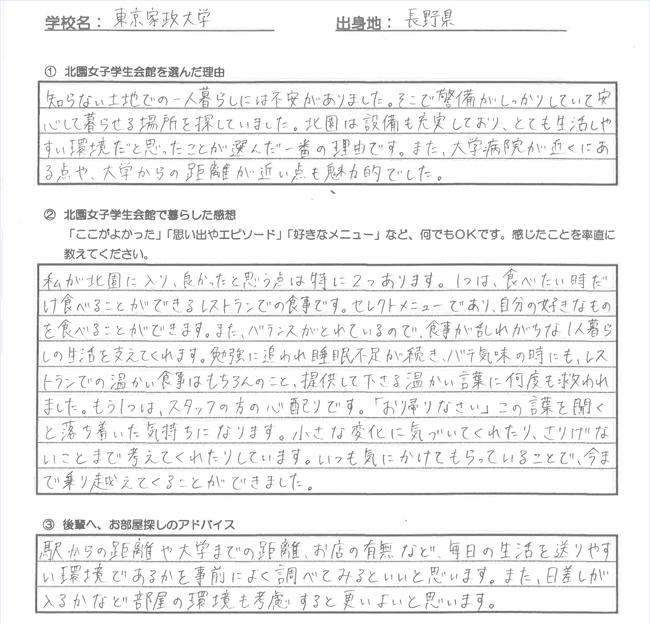 学校名： 東京家政大学　出身地： 長野県
① 北園女子学生会館を選んだ理由
知らない土地での一人暮らしには不安がありました。そこで警備がしっかりしていて安
心して暮らせる場所を探していました。北園は設備も充実しており、とても生活しや
すい環境だと思ったことが選んだ一番の理由です。また、大学病院が近くにあ
る点や、大学からの距離が近い点も魅力的でした。
② 北園女子学生会館で暮らした感想
「ここがよかった」「思い出やエピソード」「好きなメニュー」など、何でもOKです。感じたことを率直に
教えてください。
私が北園に入り、良かったと思う点は特に2つあります。1つは、食べたい時だ
け食べることができるレストランでの食事です。セレクトメニューであり、自分の好きなもの
を食べることができます。また、バランスがとれているので、食事が乱れがちな1人暮ら
しの生活を支えてくれます。勉強に追われ睡眠不足が続き、バテ気味の時にも、レス
トランでの温かい食事はもちろんのこと、提供して下さる温かい言葉に何度も救われ
ました。もう1つは、スタッフの方の心配りです。「おり帰りなさい」この言葉を聞く
と落ち着いた気持ちになります。小さな変化に気づいてくれたり、さりげな
いことまで考えてくれたりしています。いつも気にかけてもらっていることで、今ま
で乗り越えてくることができました。
③ 後輩へ、お部屋探しのアドバイス
駅からの距離や大学までの距離、お店の有無など、毎日の生活を送りやす
い環境であるかを事前によく調べてみるといいと思います。また、日差しが
入るかなど部屋の環境も考慮すると更いよいと思います。